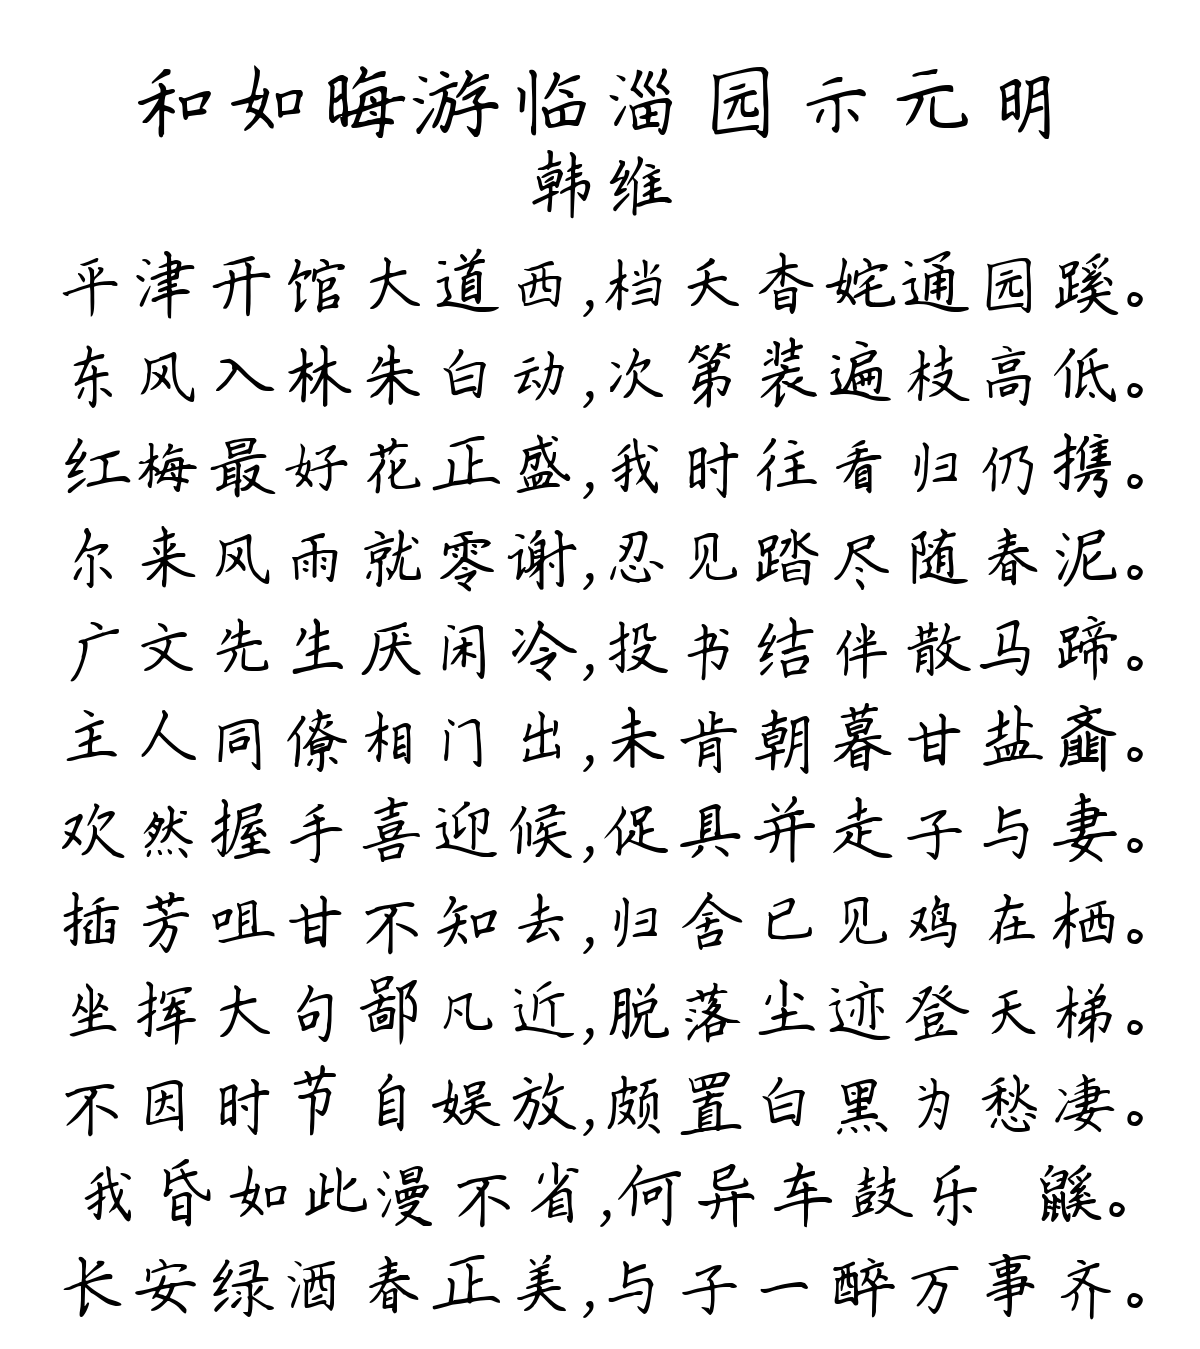 和如晦游临淄园示元明
韩维
平津开馆大道西,档夭杳姹通园蹊。
东风入林朱白动,次第装遍枝高低。
红梅最好花正盛,我时往看归仍携。
尔来风雨就零谢,忍见踏尽随春泥。
广文先生厌闲冷,投书结伴散马蹄。
主人同僚相门出,未肯朝暮甘盐齑。
欢然握手喜迎候,促具并走子与妻。
插芳咀甘不知去,归舍已见鸡在栖。
坐挥大句鄙凡近,脱落尘迹登天梯。
不因时节自娱放,颇置白黑为愁凄。
我昏如此漫不省,何异车鼓乐 鼷。
长安绿酒春正美,与子一醉万事齐。